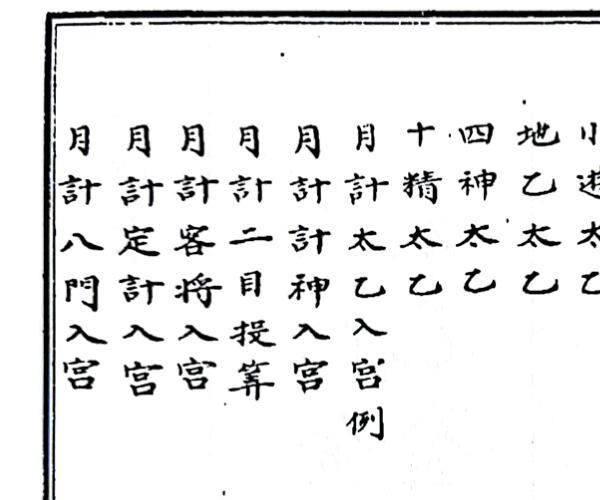 小遊太乙
地乙太乙
四神太乙
十精太乙
月計太乙入宮例
月計計神入宮
月計二目投筭
月計客将入宮
月計定計入宮
月計八門入宮